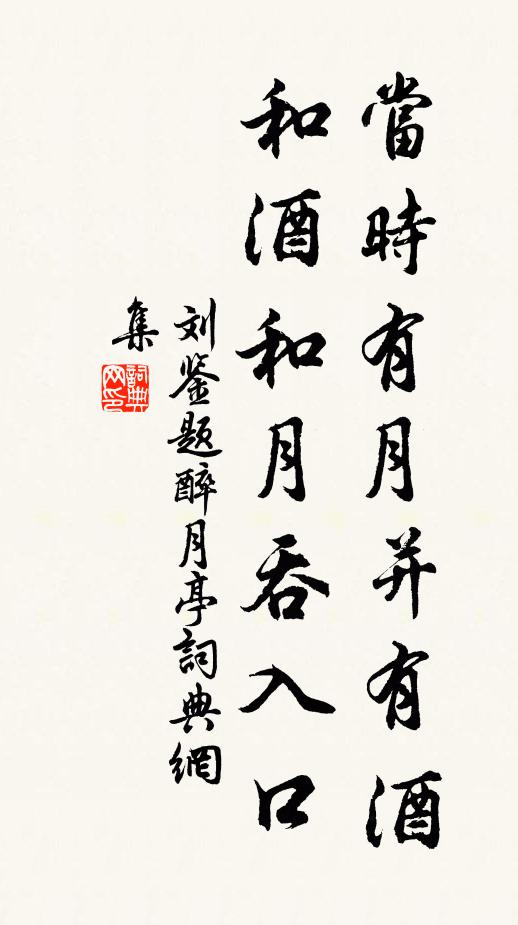 當時有月并有酒
和酒和月吞入口
刘鉴题醉月亭詞典網
集
詞典
网印